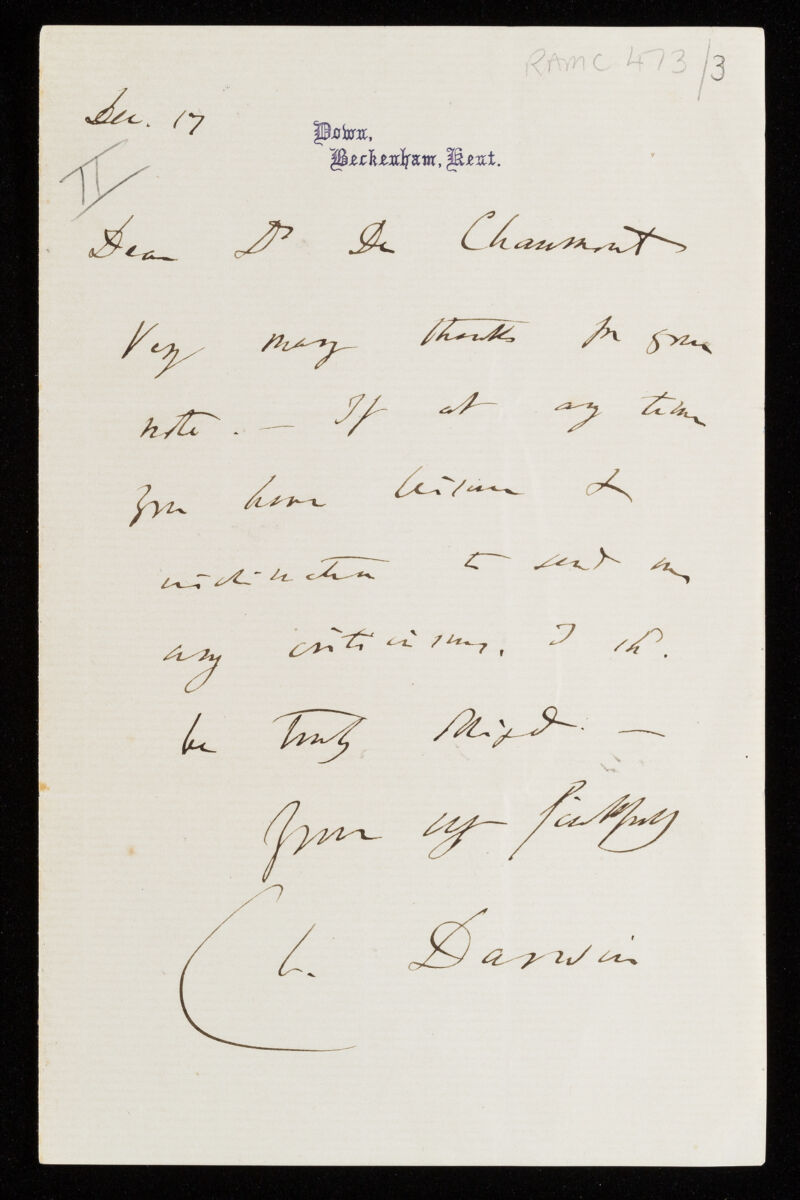 RAMC 473/3
Dec. 17
Down,
Beckenham, Kent.
II
Dear Dr De Chaumont
Very many thanks for your
note. — If at any time
you have leisure &
inclination to send me
any criticisms, I shd.
be truly obliged. —
Yours very faithfully
Ch. Darwin